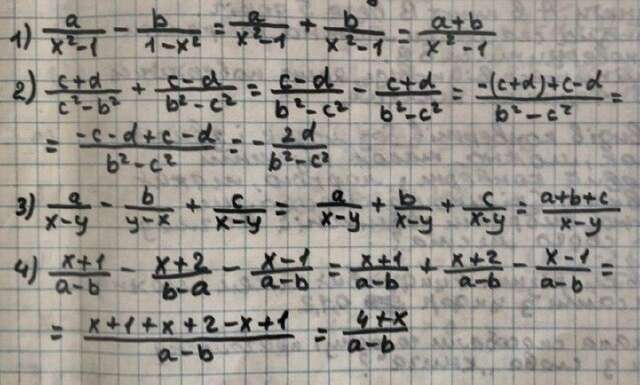 1) a/(x²-1) - b/(1-x²) = a/(x²-1) + b/(x²-1) = (a+b)/(x²-1)
2) (c+d)/(c²-b²) + (c-d)/(b²-c²) = (c-d)/(b²-c²) - (c+d)/(b²-c²) = (-(c+d)+c-d)/(b²-c²) =
= (-c-d+c-d)/(b²-c²) = - 2d/(b²-c²)
3) a/(x-y) - b/(y-x) + c/(x-y) = a/(x-y) + b/(x-y) + c/(x-y) = (a+b+c)/(x-y)
4) (x+1)/(a-b) - (x+2)/(b-a) - (x-1)/(a-b) = (x+1)/(a-b) + (x+2)/(a-b) - (x-1)/(a-b) =
= (x+1+x+2-x+1)/(a-b) = (4+x)/(a-b)